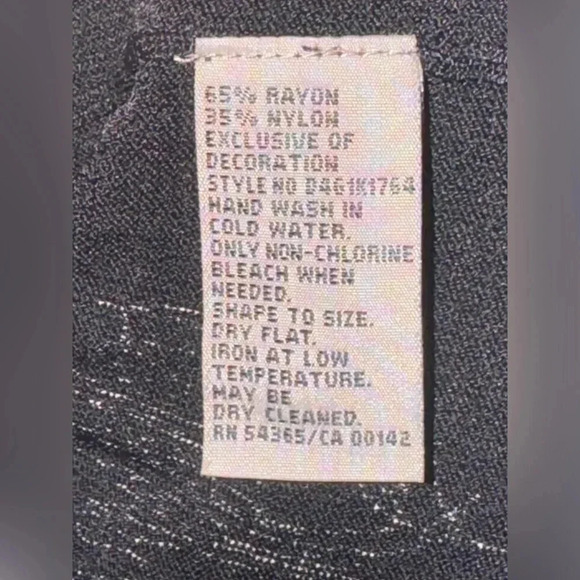 65% RAYON
35% NYLON
EXCLUSIVE OF
DECORATION
STYLE NO DA61K1764
HAND WASH IN
COLD WATER.
ONLY NON-CHLORINE
BLEACH WHEN
NEEDED.
SHAPE TO SIZE.
DRY FLAT.
IRON AT LOW
TEMPERATURE.
MAY BE
DRY CLEANED.
RN 54365/CA 00142